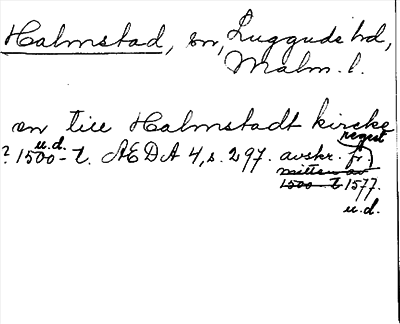 Halmstad, sn, Luggude hd,
Malm. l.
en till Halmstadt kircke
? 1500-t. u.d. AEDA 4, s. 297. avskr. fr. regest
mitten av
1500-t 1577.
u.d.